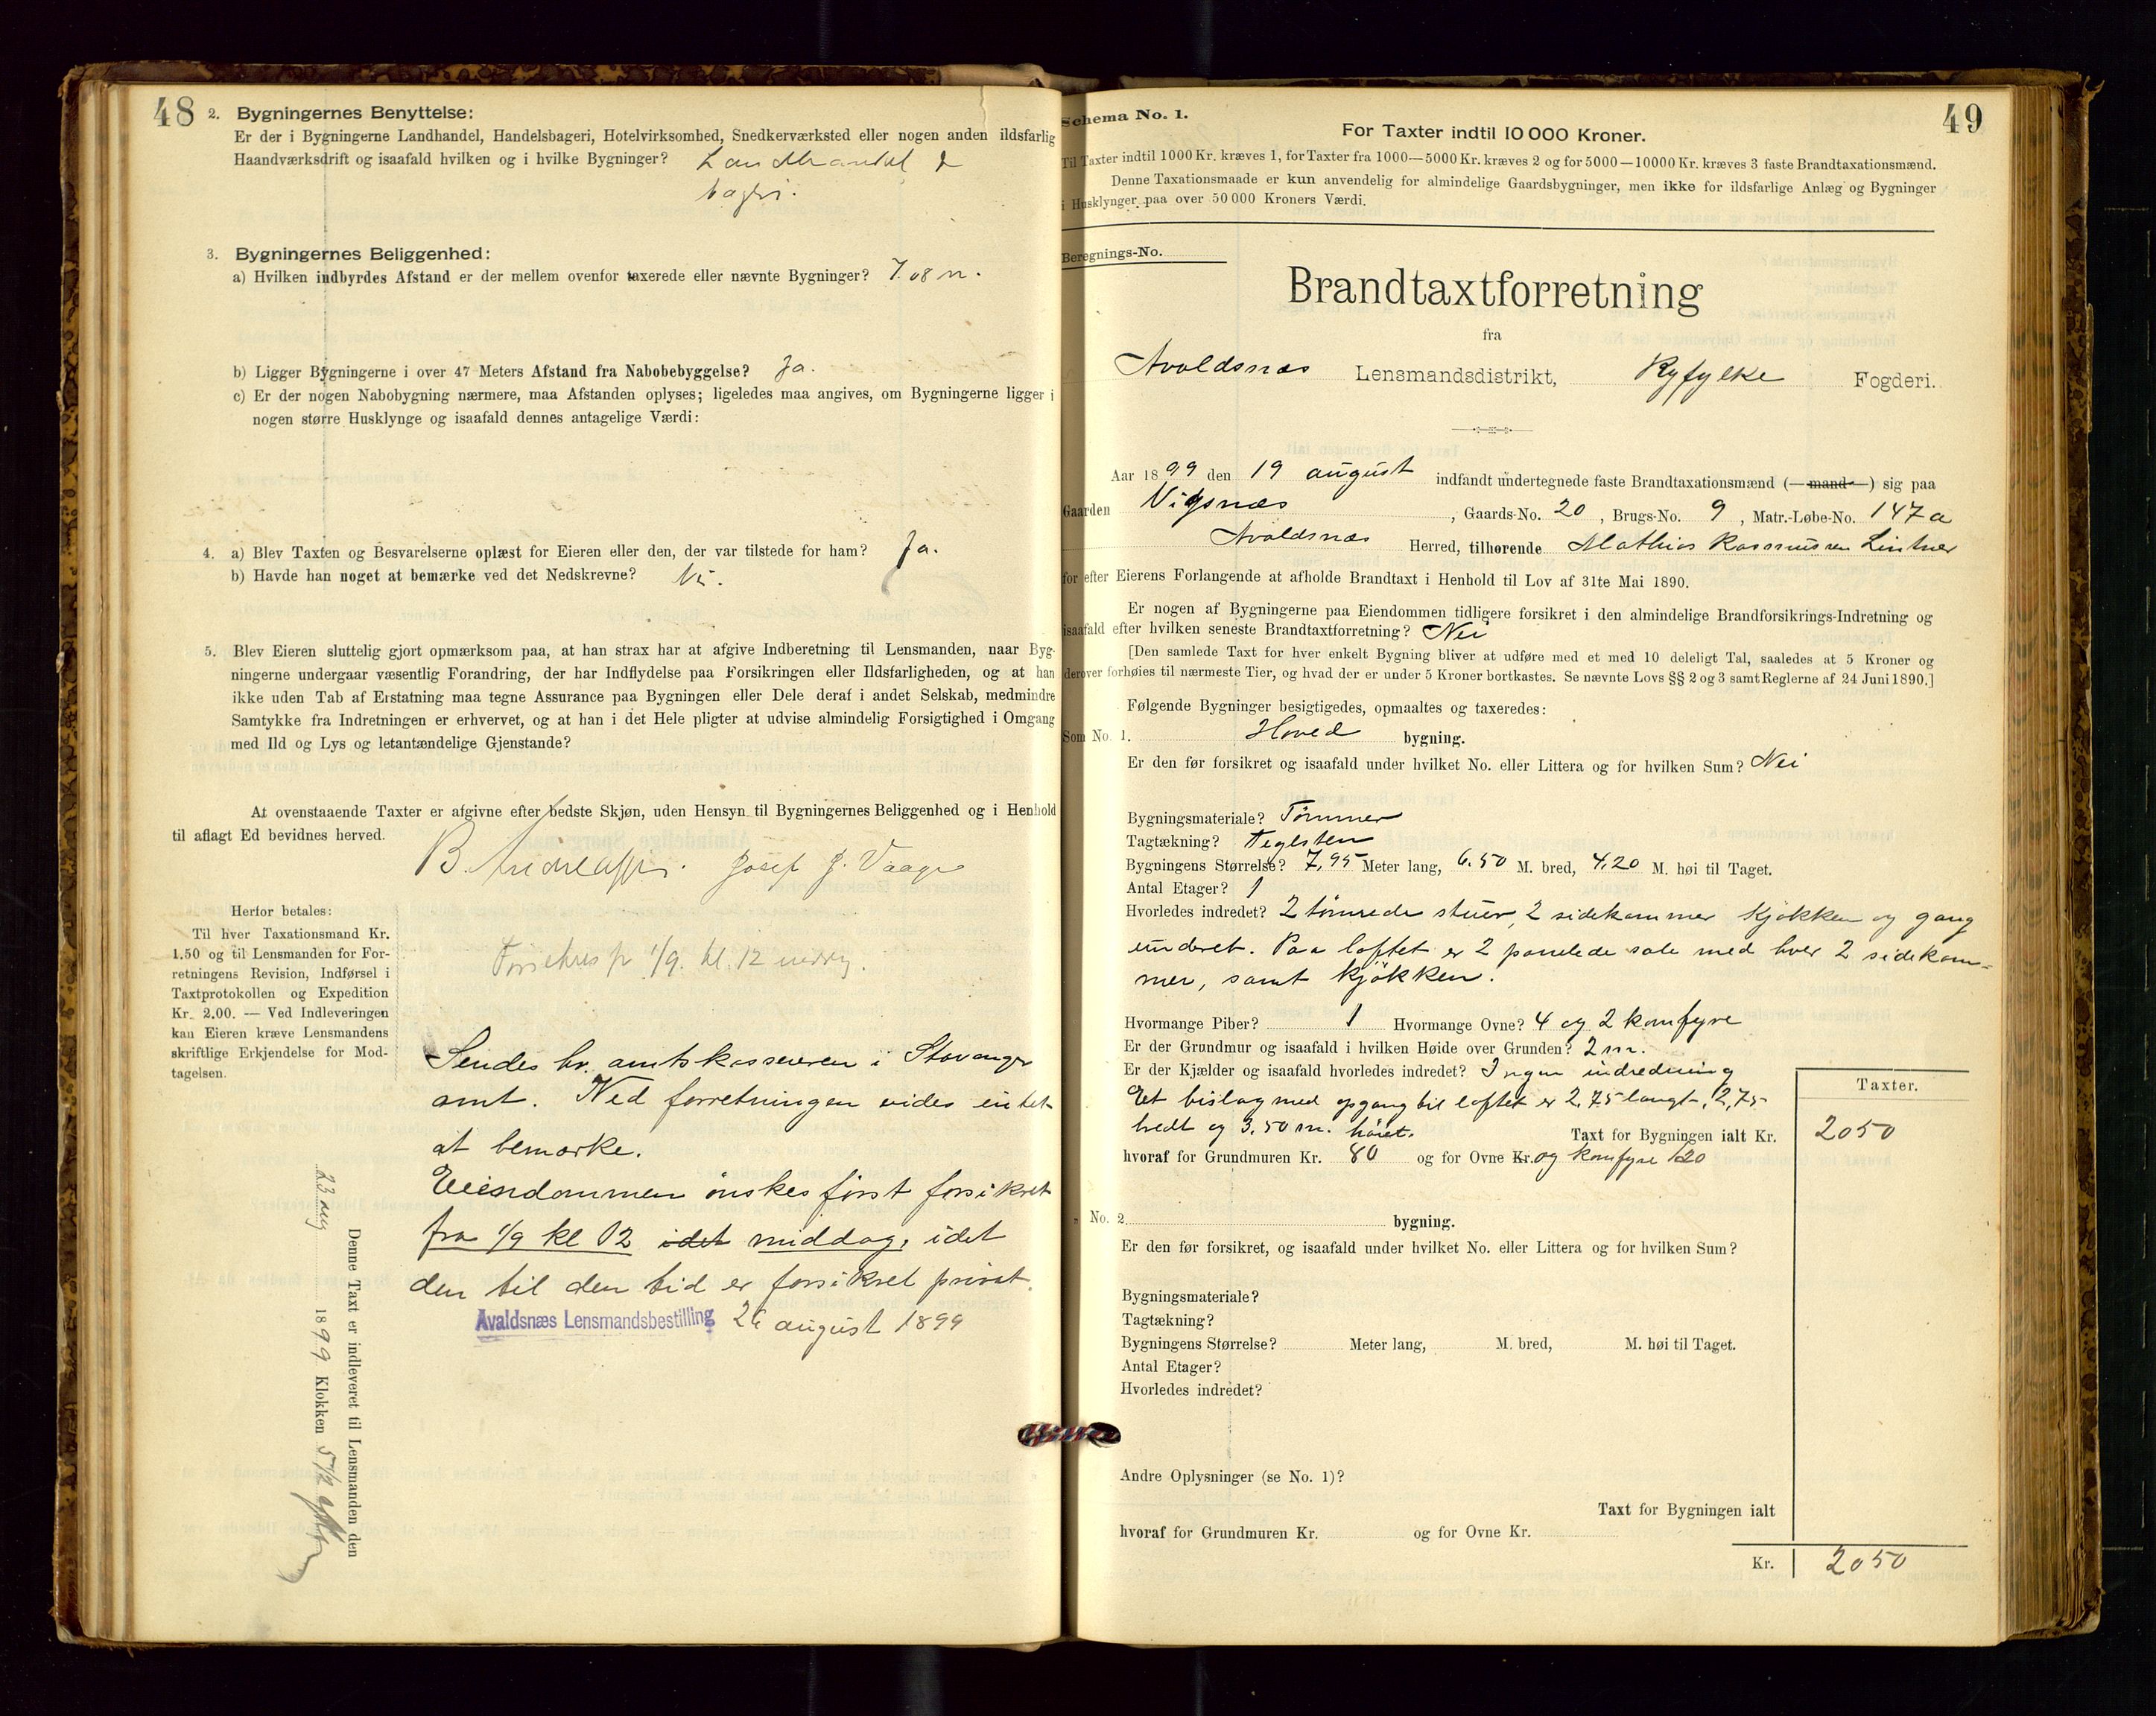 48
2. Bygningernes Benyttelse:
Er der i Bygningerne Landhandel, Handelsbageri, Hotelvirksomhed, Snedkerværksted eller nogen anden ildsfarlig
Haandværksdrift og isaafald hvilken og i hvilke Bygninger? Landhandel &
bageri.
3. Bygningernes Beliggenhed:
a) Hvilken indbyrdes Afstand er der mellem ovenfor taxerede eller nævnte Bygninger? 7.08 m.
b) Ligger Bygningerne i over 47 Meters Afstand fra Nabobebyggelse? Ja.
c) Er der nogen Nabobygning nærmere, maa Afstanden oplyses; ligeledes maa angives, om Bygningerne ligger i
nogen større Husklynge og isaafald dennes antagelige Værdi:
4. a) Blev Taxten og Besvarelserne oplæst for Eieren eller den, der var tilstede for ham? Ja.
b) Havde han noget at bemærke ved det Nedskrevne? Nei.
5. Blev Eieren sluttelig gjort opmærksom paa, at han strax har at afgive Indberetning til Lensmanden, naar Byg-
ningerne undergaar væsentlig Forandring, der har Indflydelse paa Forsikringen eller Ildsfarligheden, og at han
ikke uden Tab af Erstatning maa tegne Assurance paa Bygningen eller Dele deraf i andet Selskab, medmindre
Samtykke fra Indretningen er erhvervet, og at han i det Hele pligter at udvise almindelig Forsigtighed i Omgang
med Ild og Lys og letantændelige Gjenstande?
At ovenstaaende Taxter er afgivne efter bedste Skjøn, uden Hensyn til Bygningernes Beliggenhed og i Henhold
til aflagt Ed bevidnes herved.
B. Andreassen. Josef J. Vaage
Herfor betales:
Til hver Taxationsmand Kr.
1.50 og til Lensmanden for For-
retningens Revision, Indførsel i
Taxtprotokollen og Expedition
Kr. 2.00. — Ved Indleveringen
kan Eieren kræve Lensmandens
skriftlige Erkjendelse for Mod-
tagelsen.
1/9. kl. 12
Sendes hr. amtskassereren i Stavanger
amt. Ved forretningen vides intet
at bemærke.
Eiendommen ønskes først forsikret
fra 1/9 kl 12 idet middag, idet
den til den tid er forsikret privat.
Avaldsnæs Lensmandsbestilling 26 august 1899
Denne Taxt er indleveret til Lensmanden den
23 aug 1899 Klokken 5 1/2
49
Schema No. 1.
For Taxter indtil 10 000 Kroner.
Til Taxter indtil 1000 Kr. kræves 1, for Taxter fra 1000—5000 Kr. kræves 2 og for 5000—10000 Kr. kræves 3 faste Brandtaxationsmænd.
Denne Taxationsmaade er kun anvendelig for almindelige Gaardsbygninger, men ikke for ildsfarlige Anlæg og Bygninger
i Husklynger paa over 50 000 Kroners Værdi.
Beregnings-No.
Brandtaxtforretning
fra
Avaldsnæs Lensmandsdistrikt, Ryfylke Fogderi.
Aar 1899 den 19 august indfandt undertegnede faste Brandtaxationsmænd (—mand—) sig paa
Gaarden Vigsnæs, Gaards-No. 20, Brugs-No. 9, Matr.-Løbe-No. 147a
Avaldsnæs Herred, tilhørende Mathias Rasmussen Lintner
for efter Eierens Forlangende at afholde Brandtaxt i Henhold til Lov af 31te Mai 1890.
Er nogen af Bygningerne paa Eiendommen tidligere forsikret i den almindelige Brandforsikrings-Indretning og
isaafald efter hvilken seneste Brandtaxtforretning? Nei
[Den samlede Taxt for hver enkelt Bygning bliver at udføre med et med 10 deleligt Tal, saaledes at 5 Kroner og
derover forhøies til nærmeste Tier, og hvad der er under 5 Kroner bortkastes. Se nævnte Lovs §§ 2 og 3 samt Reglerne af 24 Juni 1890.]
Følgende Bygninger besigtigedes, opmaaltes og taxeredes:
Som No. 1. Hoved bygning.
Er den før forsikret og isaafald under hvilket No. eller Littera og for hvilken Sum? Nei
Bygningsmateriale? Tømmer
Tagtækning? Teglsten
Bygningens Størrelse? 7,95 Meter lang, 6.50 M. bred, 4,20 M. høi til Taget.
Antal Etager? 1
Hvorledes indredet? 2 tømrede stuer, 2 sidekammer Kjøkken og gang
underet. Paa loftet er 2 panelede sale med hver 2 sidekam-
mer, samt kjøkken.
Hvormange Piber? 1 Hvormange Ovne? 4 og 2 komfyre
Er der Grundmur og isaafald i hvilken Høide over Grunden? 2 m.
Er der Kjælder og isaafald hvorledes indredet? Ingen indredning
Et bislag med opgang til loftet er 2,75 langt, 2,75
bredt og 3,50 m. høiet. Taxt for Bygningen ialt Kr.
Taxter.
2050
hvoraf for Grundmuren Kr. 80 og for Ovne Kr. og komfyre 120
" No. 2. bygning.
Er den før forsikret, og isaafald under hvilket No. eller Littera og for hvilken Sum?
Bygningsmateriale?
Tagtækning?
Bygningens Størrelse? Meter lang, M. bred, M. høi til Taget.
Antal Etager?
Hvorledes indredet?
Andre Oplysninger (se No. 1)?
Taxt for Bygningen ialt
hvoraf for Grundmuren Kr. og for Ovne Kr.
Kr. 2050